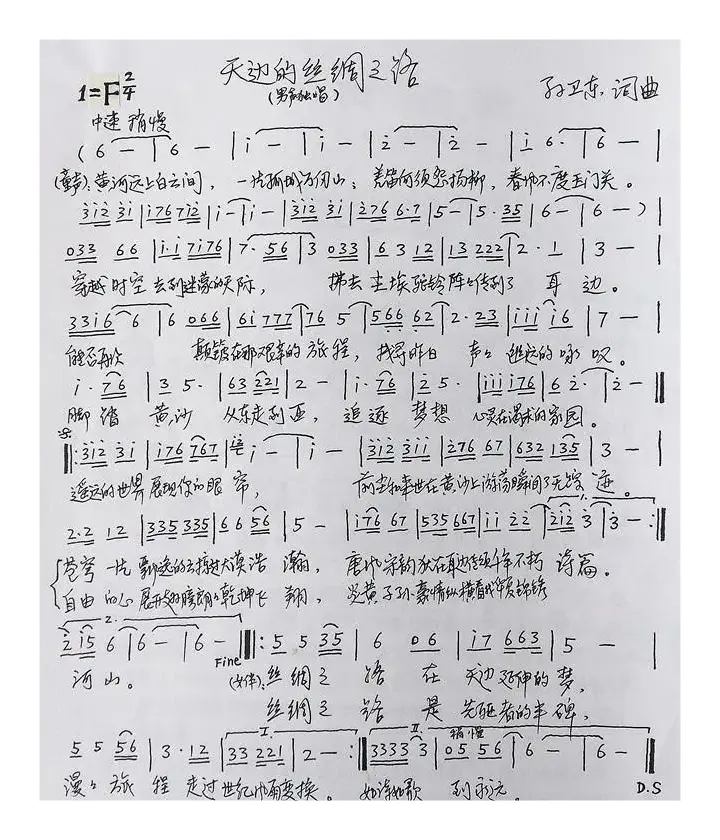 天边的丝绸之路
(男声独唱)
1=F 2/4
孙卫东 词曲
中速 稍慢
( 6 — | 6 — | i — | i — | 2 — | 2 — | i 6· | 6 — |
(童声): 黄河远上白云间, 一片孤城万仞山; 羌笛何须怨杨柳, 春风不度玉门关。
312 31 | i76 7i2 | i — | i — | 312 31 | 276 6·7 | 5 — | 5· 35 | 6 — | 6 — ) |
033 66 | i·i 7i76 | 7· 56 | 3 033 | 6 3 12 | 13 222 | 2· 1 | 3 — |
穿越时空去到迷蒙的天际, 拂去尘埃驼铃阵々传到了耳边。
33i6 6 | 6 066 | 6i 777 | 76 5 | 566 62 | 2· 23 | iii i6 | 7 — |
能否再次 颠簸在那艰辛的旅程, 找寻昨日 声々 遥远的咏叹。
i· 76 | 3 5· | 63 221 | 2 — | i· 76 | 2 5· | iii i76 | 6 2· | 2 —
脚踏 黄沙 从东走到西, 追逐 梦想 心灵在渴求的家园。
312 31 | i76 767 | i — | i — | 312 3ii | 276 67 | 632 135 | 3 — |
遥远的世界展现你的眼帘, 前尘和来世在黄沙上游荡瞬间了无踪迹。
2·2 12 | 335 335 | 66 56 | 5 — | i76 67 | 535 667 | ii 22 | 2i2 3 | 3 — :
苍穹一片 飘逸的云掠过大漠浩瀚, 唐风宋韵犹在耳边传颂千年不朽诗篇。
自由的心展开翅膀朗々乾坤飞翔, 炎黄子孙豪情纵横看我锦绣
2.
2 i5 6 | 6 — | 6 — : 5 5 35 | 6 06 | i7 663 | 5 — |
Fine
河山。 (女伴): 丝绸之路在天边延伸的梦,
丝绸之路是先驱者的丰碑,
I. II. 稍慢
5 5 56 | 3· 12 | 33 221 | 2 — : 3333 3 | 05 56 | 6 — | 6 —
漫々旅程走过世纪风雨变换。 如诗如歌 到永远
D.S